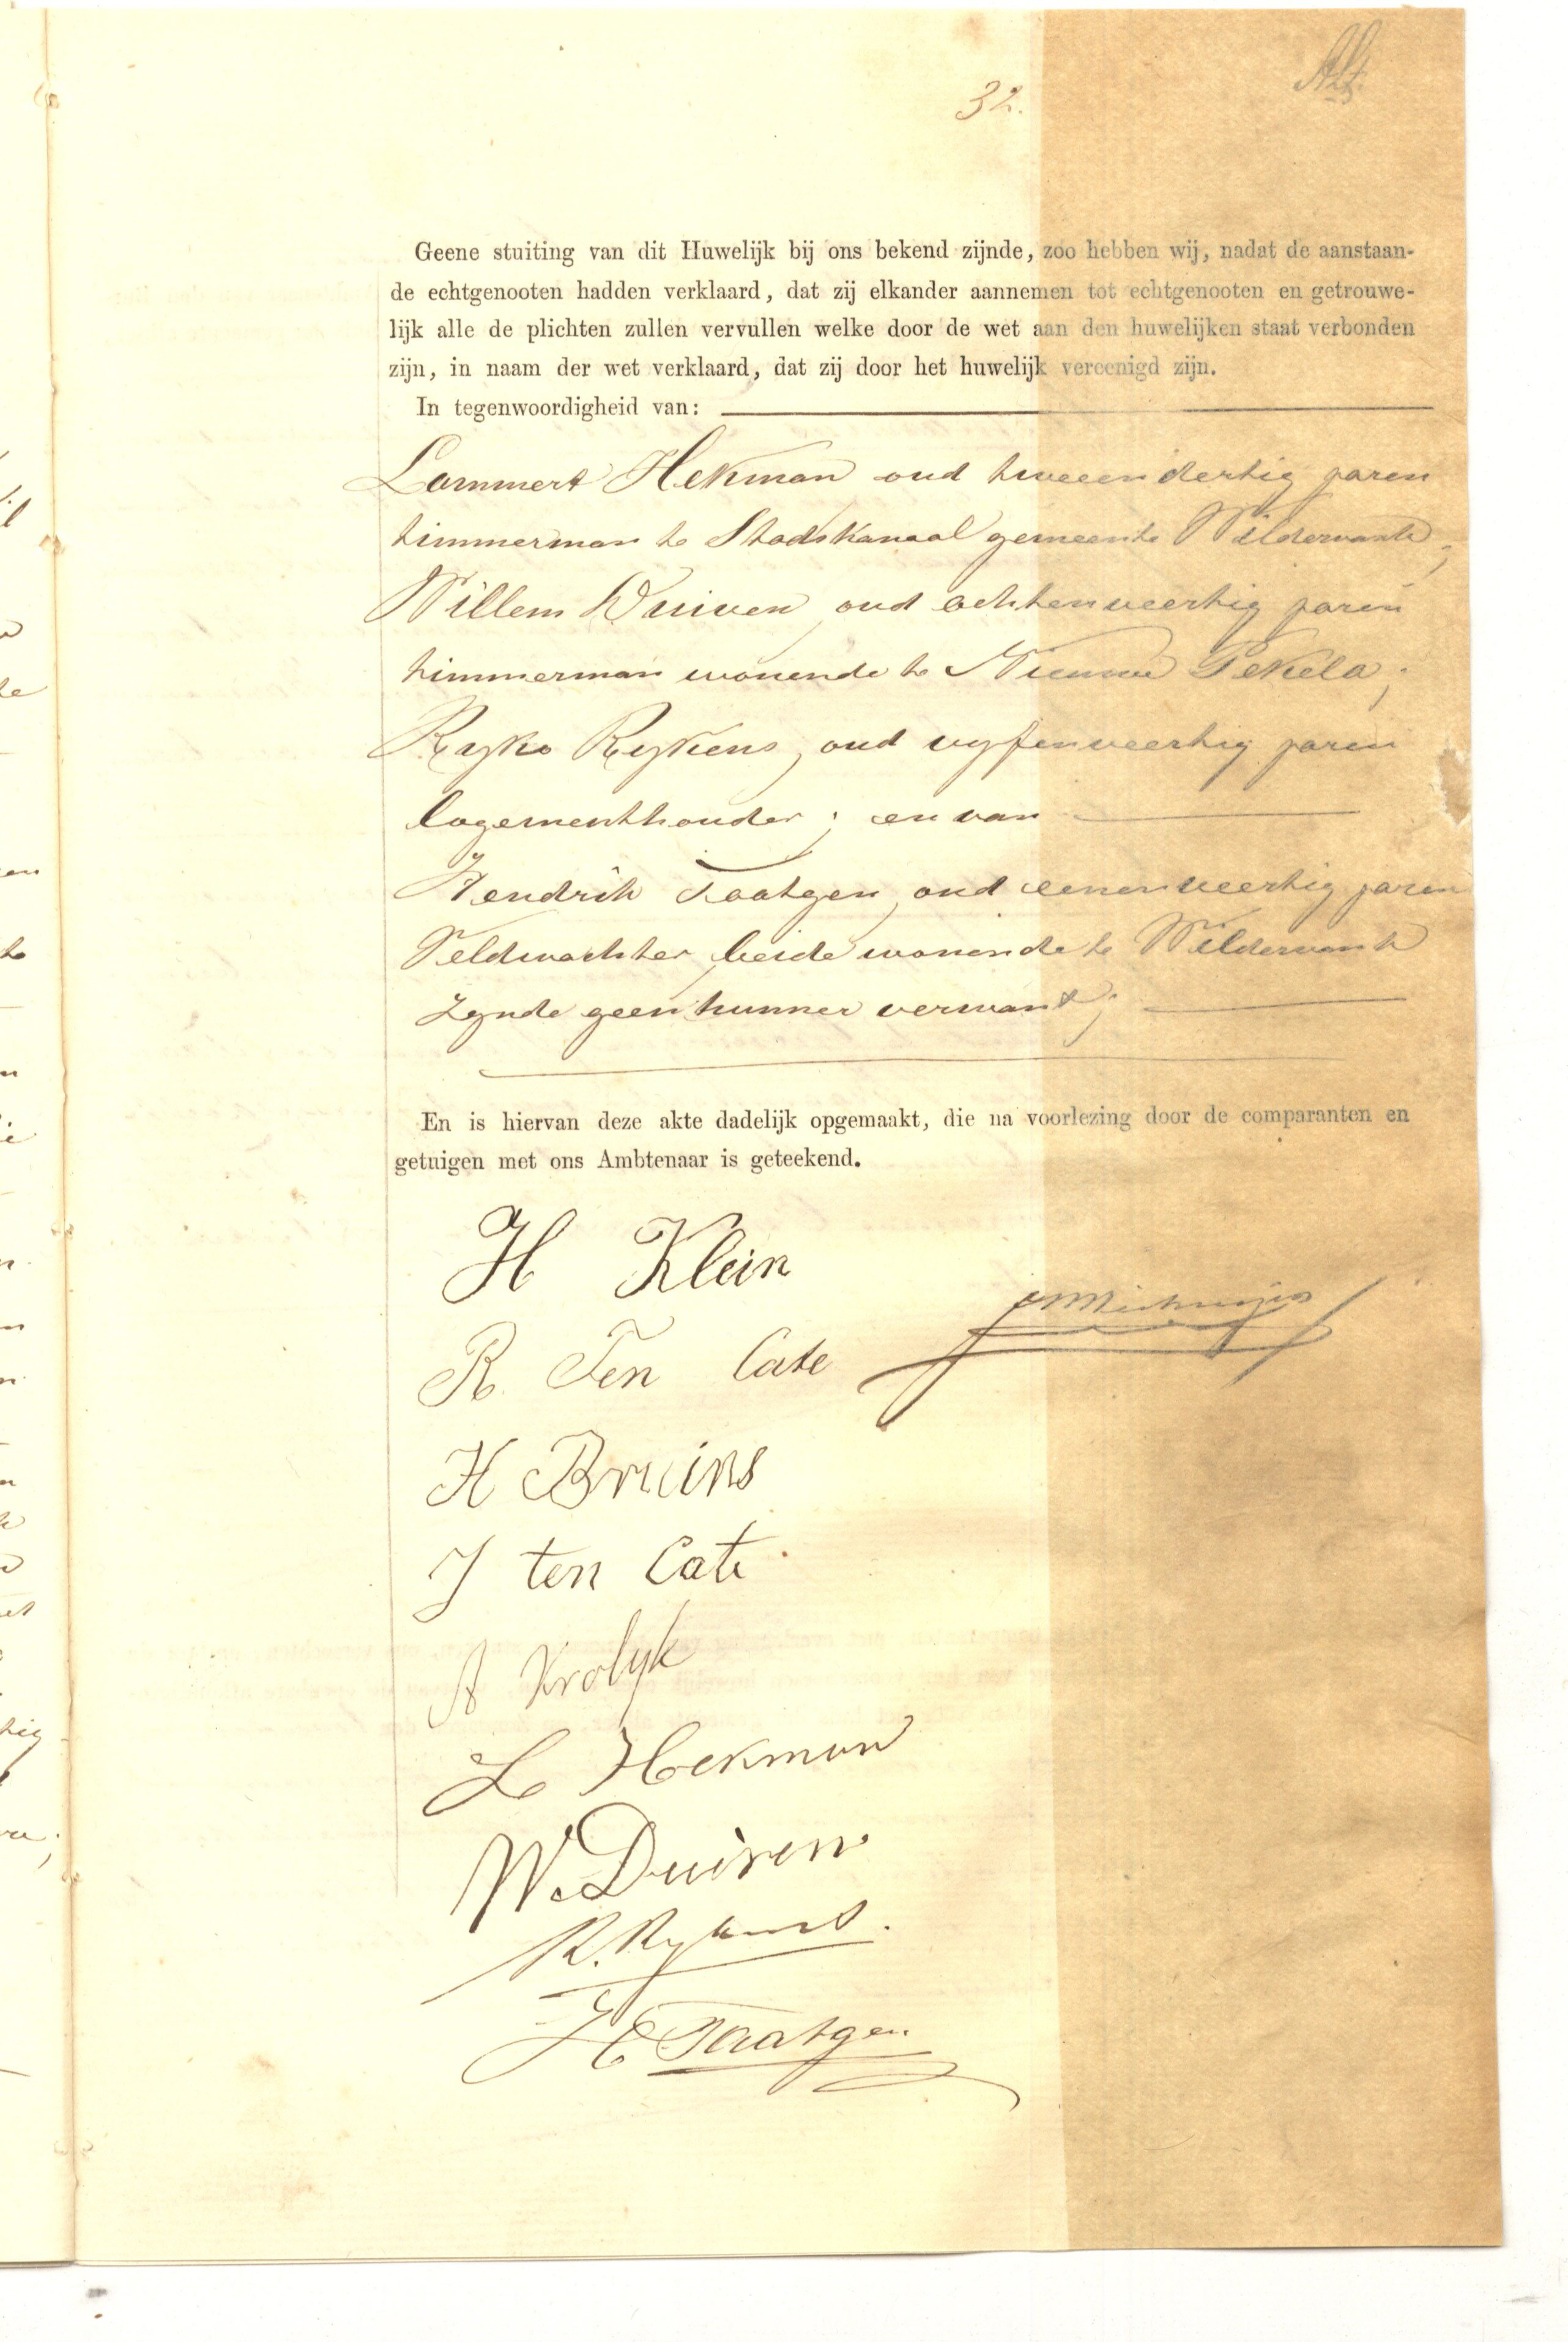 32.
Geene stuiting van dit Huwelijk bij ons bekend zijnde, zoo hebben wij, nadat de aanstaan-
de echtgenooten hadden verklaard, dat zij elkander aannemen tot echtgenooten en getrouwe-
lijk alle de plichten zullen vervullen welke door de wet aan den huwelijken staat verbonden
zijn, in naam der wet verklaard, dat zij door het huwelijk vereenigd zijn.
In tegenwoordigheid van:
Lammert Hekman oud tweeendertig jaren
timmerman te Stadskanaal gemeente Wildervank;
Willem Duiven, oud achtenveertig jaren
timmerman wonende te Nieuwe Pekela;
Ryko Rykens, oud vyfenveertig jaren
logementhouder; en van
Hendrik Taatgen, oud eenenveertig jaren
Veldwachter, beide wonende te Wildervank
zynde geen hunner verwant;
En is hiervan deze akte dadelijk opgemaakt, die na voorlezing door de comparanten en
getuigen met ons Ambtenaar is geteekend.
H Klein
R. Ten Cate
H Bruins
J ten Cate
A Krolyk
L Hekman
W. Duiven
R. Rykens.
H Taatgen